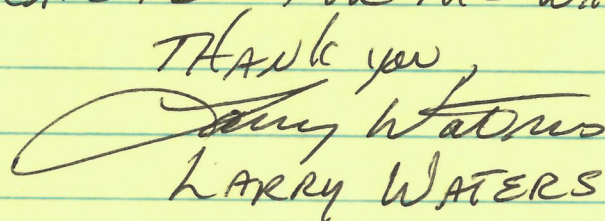 THANK you,
Larry Waters
LARRY WATERS